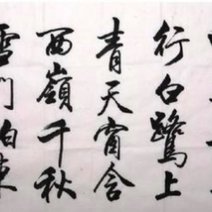 行白鷺上
青天窗含
西嶺千秋
雪門泊東